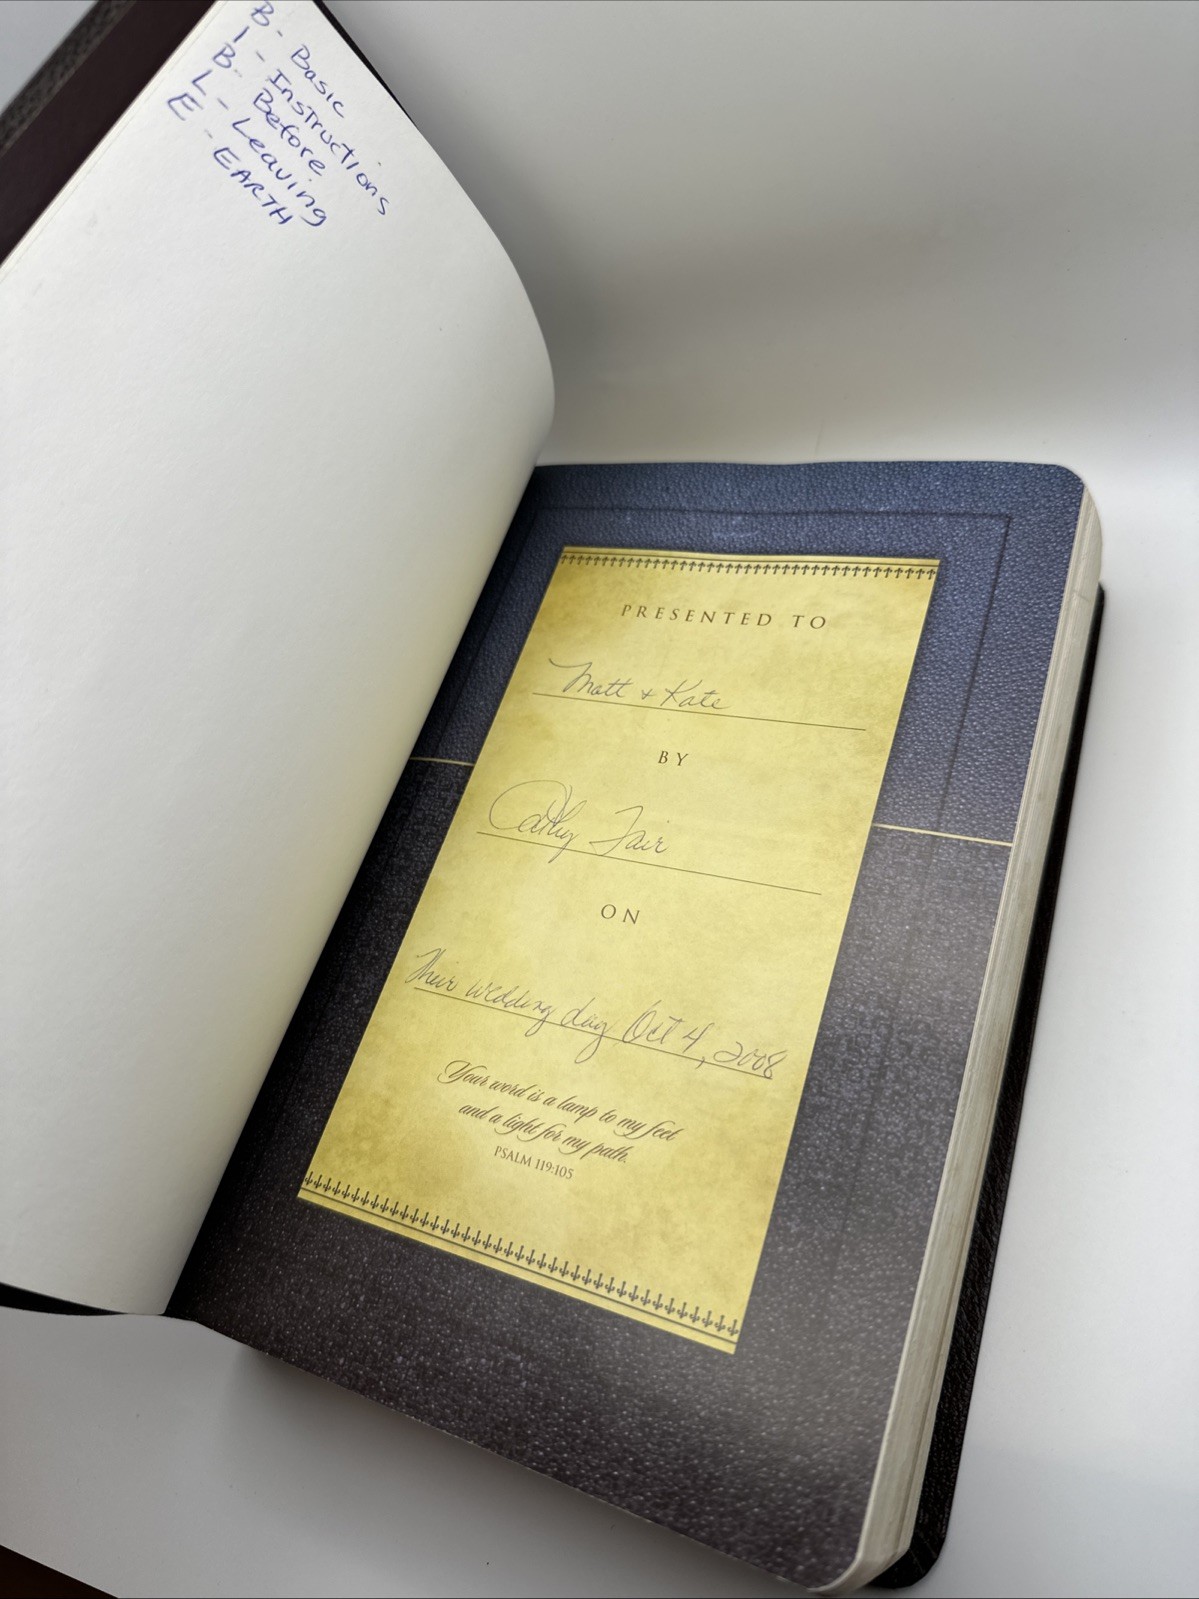 B - Basic
I - Instructions
B - Before
L - Leaving
E - EARTH
PRESENTED TO
Matt + Kate
BY
Cathy Fair
ON
Their wedding day Oct 4, 2008
Your word is a lamp to my feet
and a light for my path.
PSALM 119:105